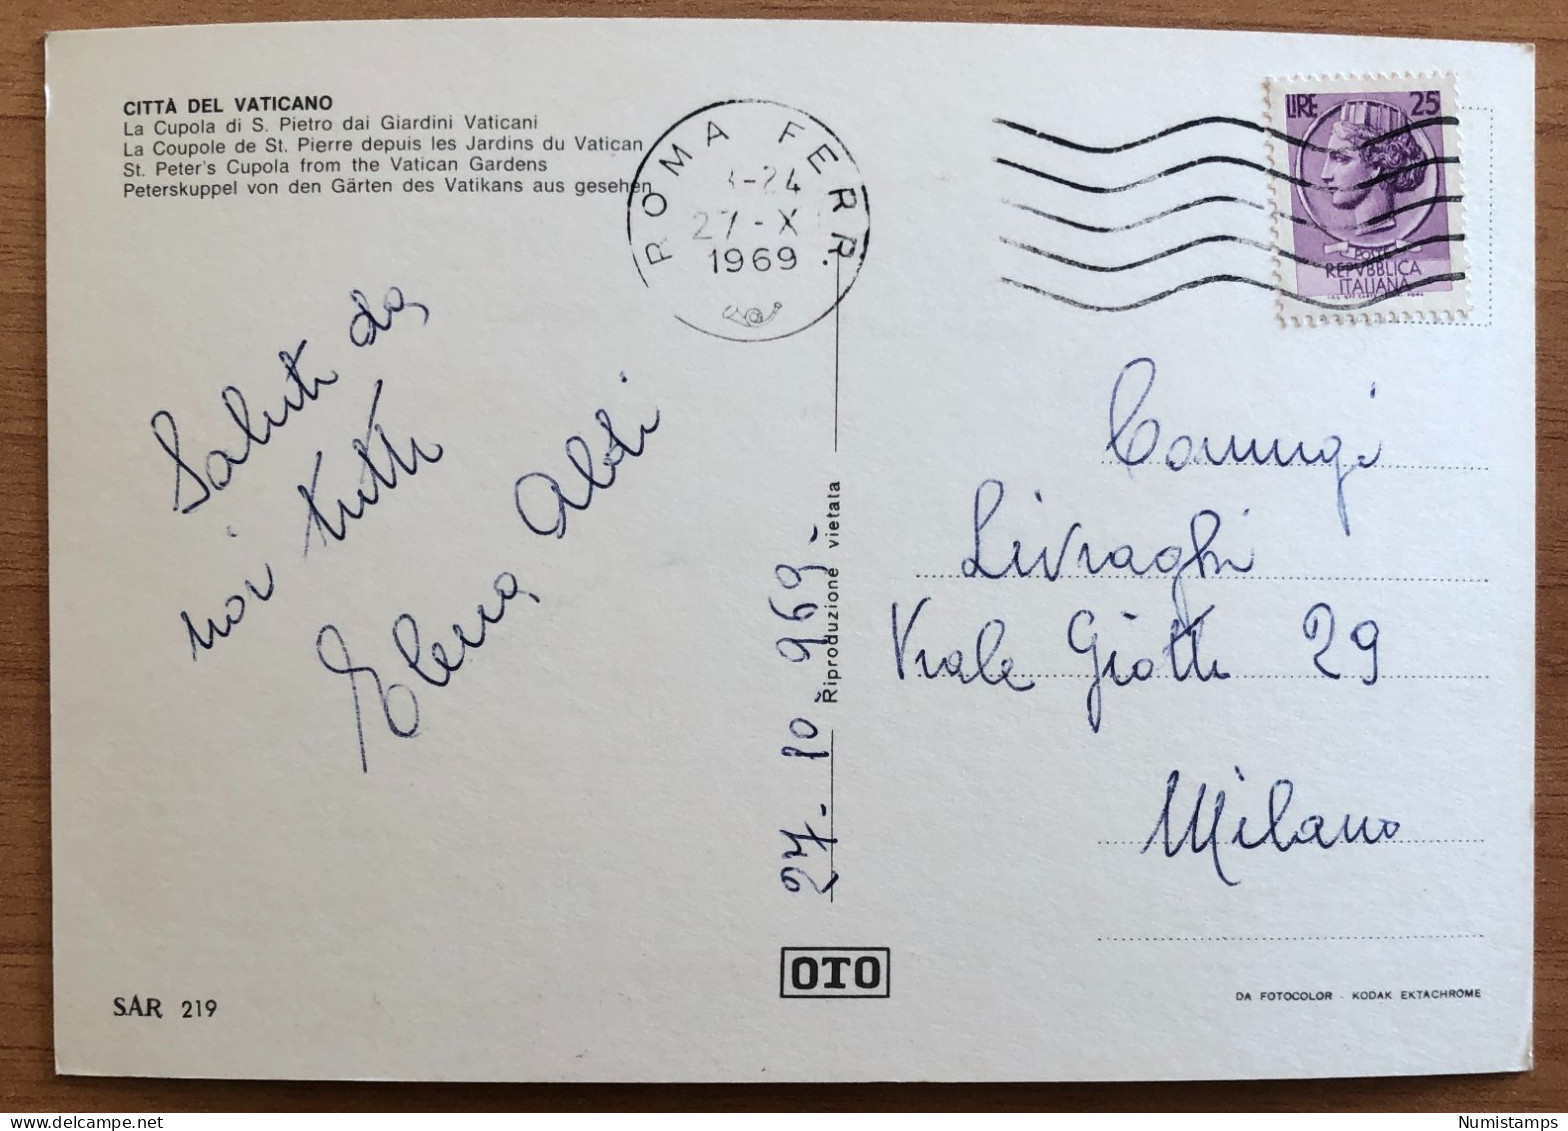 CITTÀ DEL VATICANO
La Cupola di S. Pietro dai Giardini Vaticani
La Coupole de St. Pierre depuis les Jardins du Vatican
St. Peter's Cupola from the Vatican Gardens
Peterskuppel von den Gärten des Vatikans aus gesehen
ROMA FERR.
-24
27-X
1969
LIRE 25
POSTE
REPVBBLICA
ITALIANA
Saluti da
noi tutti
Elena Aldi
27.10.969
Riproduzione vietata
Coniugi
Livraghi
Viale Giotti 29
Milano
OTO
SAR 219
DA FOTOCOLOR - KODAK EKTACHROME
delcampe.net
Numistamps